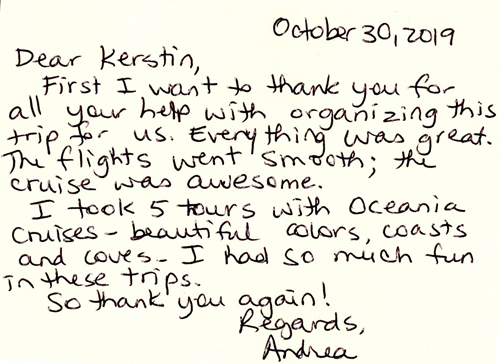 October 30, 2019
Dear Kerstin,
First I want to thank you for
all your help with organizing this
trip for us. Everything was great.
The flights went smooth; the
cruise was awesome.
I took 5 tours with Oceania
Cruises - beautiful colors, coasts
and coves - I had so much fun
in these trips.
So thank you again!
Regards,
Andrea